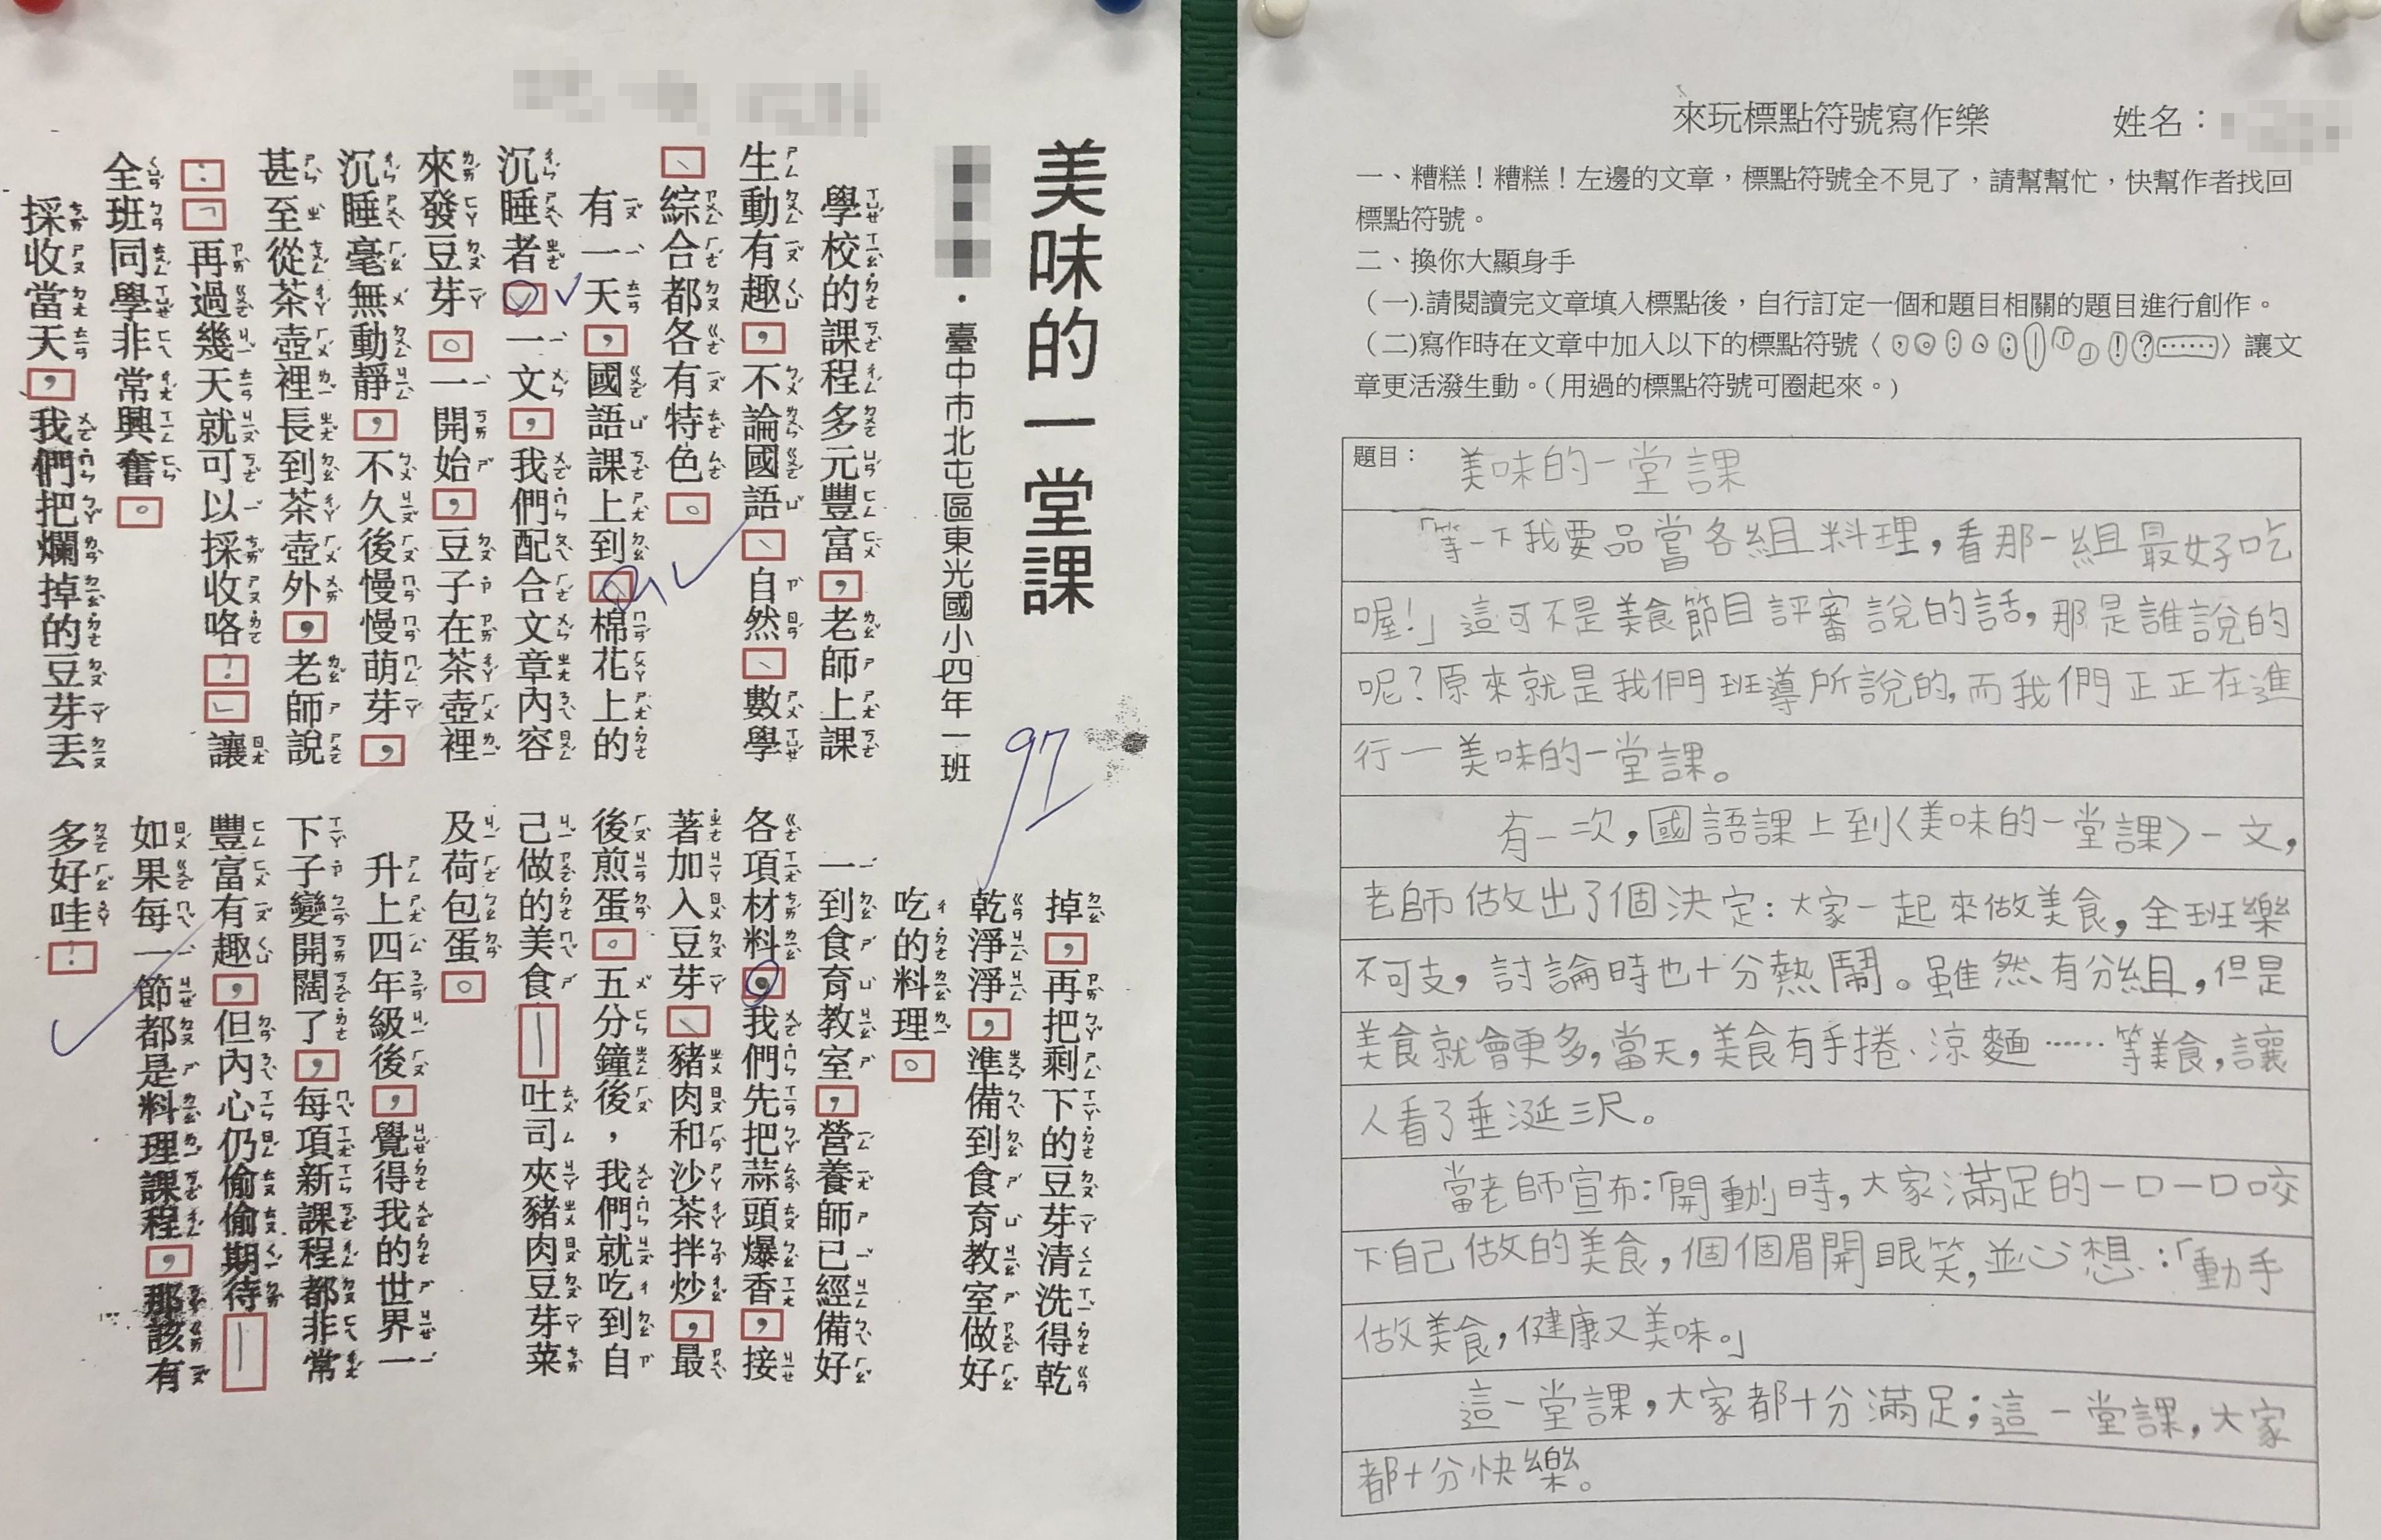 美味的一堂課
・臺中市北屯區東光國小四年一班
97
學校的課程多元豐富，老師上課
生動有趣，不論國語、自然、數學
、綜合都各有特色。
有一天，國語課上到〈棉花上的
沉睡者〉一文，我們配合文章內容
來發豆芽。一開始，豆子在茶壺裡
沉睡毫無動靜，不久後慢慢萌芽，
甚至從茶壺裡長到茶壺外，老師說
：「再過幾天就可以採收咯！」讓
全班同學非常興奮。
採收當天，我們把爛掉的豆芽丟
掉，再把剩下的豆芽清洗得乾
乾淨淨，準備到食育教室做好
吃的料理。
一到食育教室，營養師已經備好
各項材料，我們先把蒜頭爆香，接
著加入豆芽、豬肉和沙茶拌炒，最
後煎蛋。五分鐘後，我們就吃到自
己做的美食──吐司夾豬肉豆芽菜
及荷包蛋。
升上四年級後，覺得我的世界一
下子變開闊了，每項新課程都非常
豐富有趣，但內心仍偷偷期待──
如果每一節都是料理課程，那該有
多好哇！
來玩標點符號寫作樂 姓名：
一、糟糕！糟糕！左邊的文章，標點符號全不見了，請幫幫忙，快幫作者找回
標點符號。
二、換你大顯身手
（一).請閱讀完文章填入標點後，自行訂定一個和題目相關的題目進行創作。
（二)寫作時在文章中加入以下的標點符號〈，。：、；│「」！？……〉讓文
章更活潑生動。（用過的標點符號可圈起來。)
題目： 美味的一堂課
「等一下我要品嘗各組料理，看那一組最好吃
喔！」這可不是美食節目評審說的話，那是誰說的
呢？原來就是我們班導所說的，而我們正正在進
行一美味的一堂課。
有一次，國語課上到〈美味的一堂課〉一文，
老師做出了個決定：大家一起來做美食，全班樂
不可支，討論時也十分熱鬧。雖然有分組，但是
美食就會更多，當天，美食有手捲、涼麵……等美食，讓
人看了垂涎三尺。
當老師宣布：「開動！」時，大家滿足的一口一口咬
下自己做的美食，個個眉開眼笑，並心想：「動手
做美食，健康又美味。」
這一堂課，大家都十分滿足；這一堂課，大家
都十分快樂。